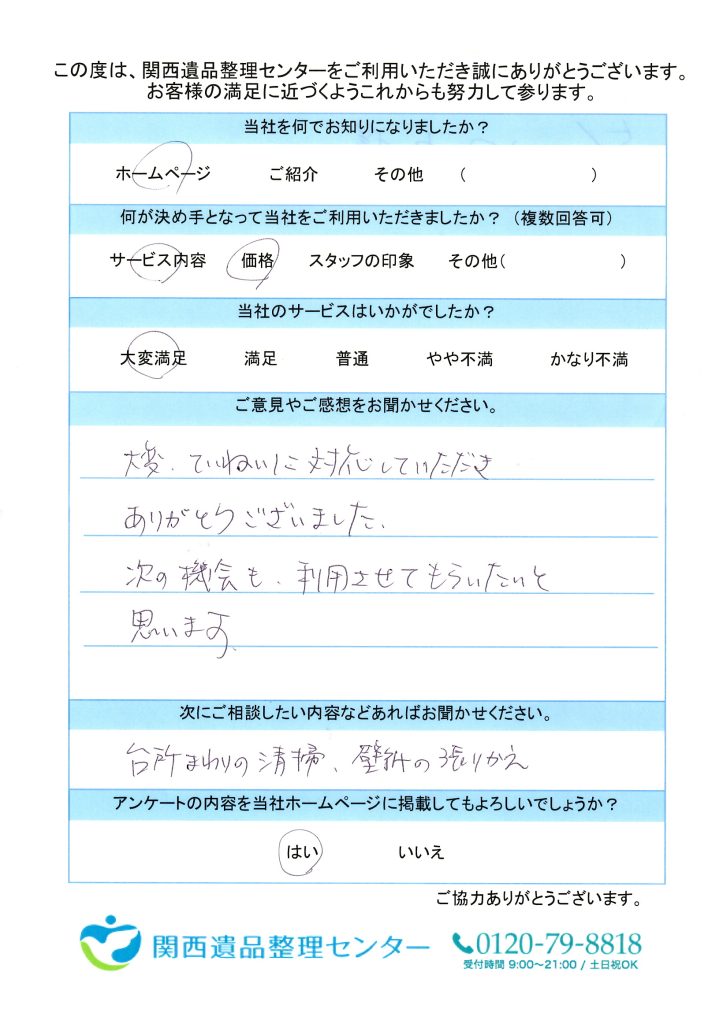 この度は、関西遺品整理センターをご利用いただき誠にありがとうございます。
お客様の満足に近づくようこれからも努力して参ります。
当社を何でお知りになりましたか？
ホームページ ご紹介 その他 （ ）
何が決め手となって当社をご利用いただきましたか？（複数回答可）
サービス内容 価格 スタッフの印象 その他（ ）
当社のサービスはいかがでしたか？
大変満足 満足 普通 やや不満 かなり不満
ご意見やご感想をお聞かせください。
大変、ていねいに対応していただき
ありがとうございました、
次の機会も、利用させてもらいたいと
思います。
次にご相談したい内容などあればお聞かせください。
台所まわりの清掃、壁紙の張りかえ
アンケートの内容を当社ホームページに掲載してもよろしいでしょうか？
はい いいえ
ご協力ありがとうございます。
関西遺品整理センター 0120-79-8818
受付時間 9:00～21:00 / 土日祝OK